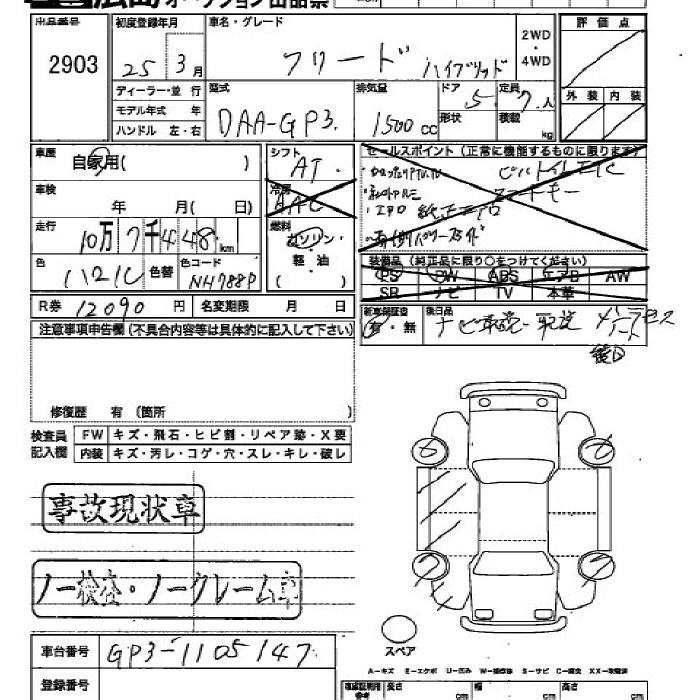 広島オークション出品票
出品番号 2903
初度登録年月 25年 3月
車名・グレード フリード ハイブリッド
2WD・4WD
評価点
外装 内装
ディーラー・並行
モデル年式 年
ハンドル 左・右
型式 DAA-GP3.
排気量 1500 CC
ドア 5. 形状
定員 7.人
積載 kg
車歴 自家用( )
シフト AT.
セールスポイント(正常に機能するものに限ります)
車検 年 月( 日)
冷房 AAC
走行 10万7千448km
燃料 ガソリン・軽油・( )
色 パール
色替
色コード NH788P
装備品(純正品に限り○をつけてください)
PS PW ABS エアB AW
SR ナビ TV 本革
R券 12090 円
名変期限 月 日
新車保証書 有・無
後日品 ナビ取説・取説
後日
注意事項申告欄(不具合内容等は具体的に記入して下さい)
修復歴 有(箇所 )
検査員記入欄
FW キズ・飛石・ヒビ割・リペア跡・X要
内装 キズ・汚レ・コゲ・穴・スレ・キレ・破レ
事故現状車
ノー検査・ノークレーム車
スペア
車台番号 GP3-1105147
登録番号
A－キズ E－エクボ U－凹み S－サビ C－腐食 XX－交換済
長さ cm 幅 cm cm